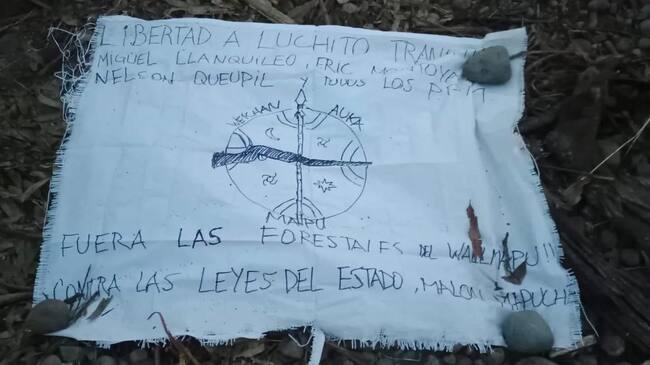 LIBERTAD A LUCHITO
MIGUEL LLANQUILEO, ERIC
NELSON QUEUPIL Y TODOS LOS
AUKA
MAIPU
FUERA LAS FORESTALES DEL WALLMAPU!!
CONTRA LAS LEYES DEL ESTADO, MALON MAPUCHE